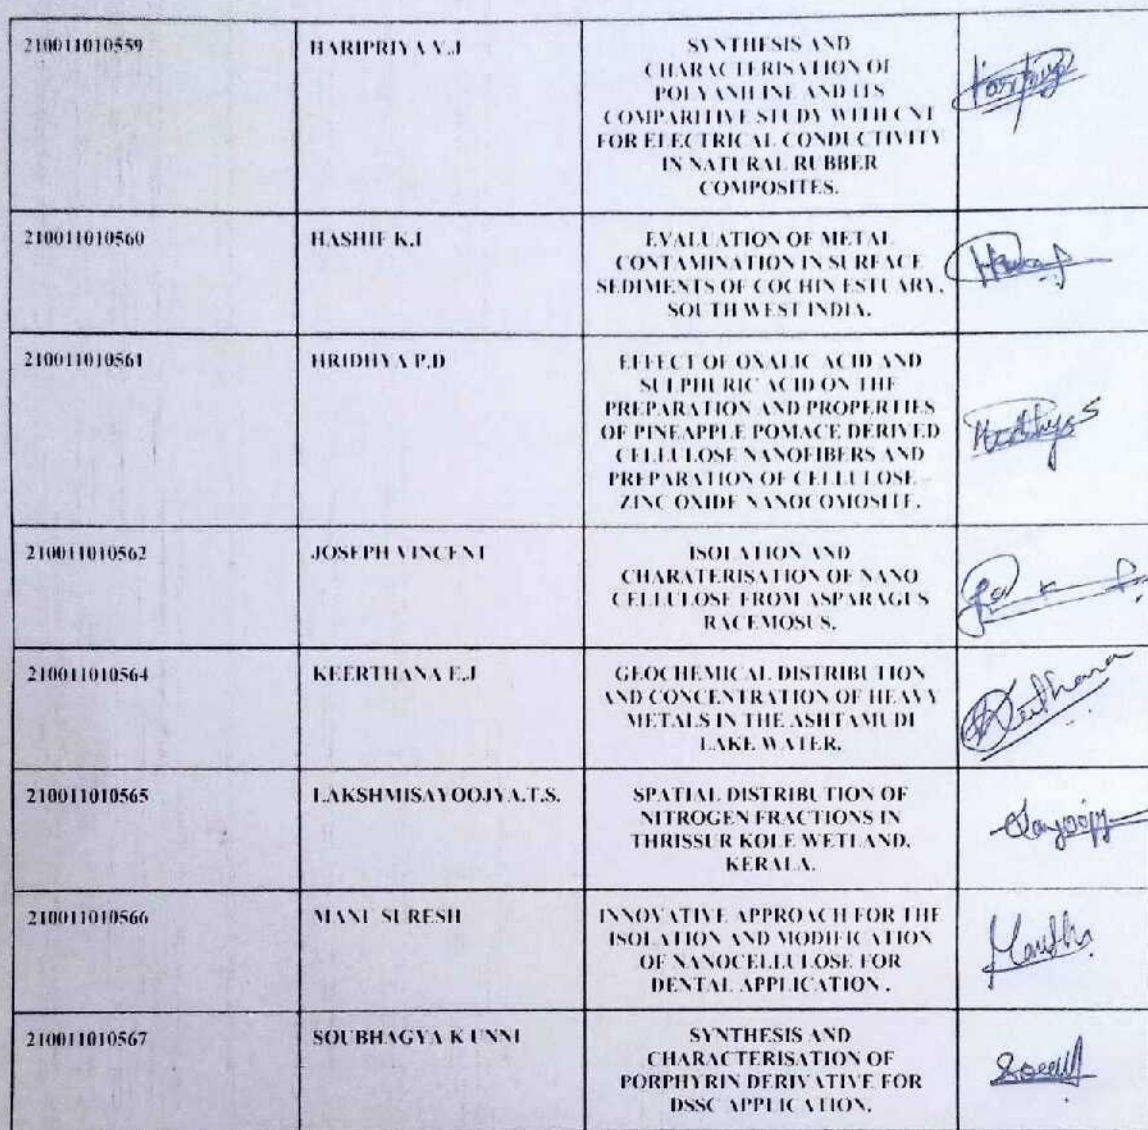 210011010559
HARIPRIYA V.J
SYNTHESIS AND
CHARACTERISATION OF
POLYANILINE AND ITS
COMPARITIVE STUDY WITH CNT
FOR ELECTRICAL CONDUCTIVITY
IN NATURAL RUBBER
COMPOSITES.
210011010560
HASHIF K.I
EVALUATION OF METAL
CONTAMINATION IN SURFACE
SEDIMENTS OF COCHIN ESTUARY,
SOUTH WEST INDIA.
210011010561
HRIDHYA P.D
EFFECT OF OXALIC ACID AND
SULPHURIC ACID ON THE
PREPARATION AND PROPERTIES
OF PINEAPPLE POMACE DERIVED
CELLULOSE NANOFIBERS AND
PREPARATION OF CELLULOSE –
ZINC OXIDE NANOCOMOSITE.
210011010562
JOSEPH VINCENT
ISOLATION AND
CHARATERISATION OF NANO
CELLULOSE FROM ASPARAGUS
RACEMOSUS.
210011010564
KEERTHANA E.J
GEOCHEMICAL DISTRIBUTION
AND CONCENTRATION OF HEAVY
METALS IN THE ASHTAMUDI
LAKE WATER.
Keerthana
210011010565
LAKSHMISAYOOJYA.T.S.
SPATIAL DISTRIBUTION OF
NITROGEN FRACTIONS IN
THRISSUR KOLE WETLAND,
KERALA.
210011010566
MANU SURESH
INNOVATIVE APPROACH FOR THE
ISOLATION AND MODIFICATION
OF NANOCELLULOSE FOR
DENTAL APPLICATION .
210011010567
SOUBHAGYA K UNNI
SYNTHESIS AND
CHARACTERISATION OF
PORPHYRIN DERIVATIVE FOR
DSSC APPLICATION.